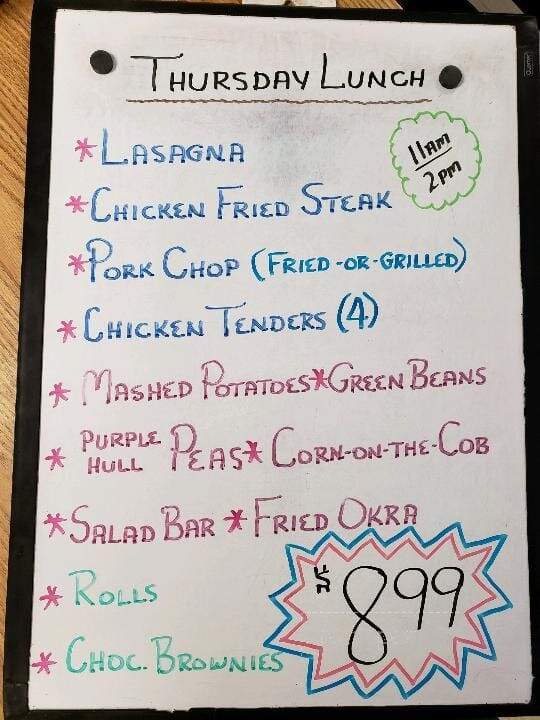 THURSDAY LUNCH
11AM
2PM
*LASAGNA
*CHICKEN FRIED STEAK
*PORK CHOP (FRIED-OR-GRILLED)
*CHICKEN TENDERS (4)
* MASHED POTATOES*GREEN BEANS
* PURPLE HULL PEAS* CORN-ON-THE-COB
*SALAD BAR *FRIED OKRA
* ROLLS
* CHOC. BROWNIES
$899